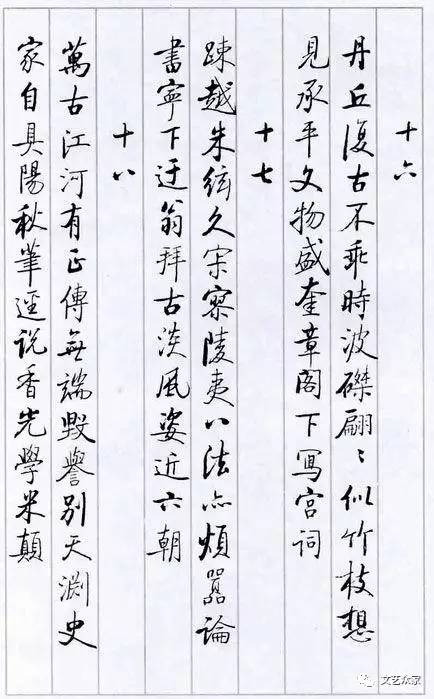 十六
丹丘復古不乖時波磔翩〻似竹枝想
見承平文物盛奎章閣下寫宮词
十七
疎越朱絃久寂寥陵夷八法亦煩囂論
書寧下迂翁拜古淡風姿近六朝
十八
萬古江河有正傳無端毀譽別天淵史
家自具陽秋筆逕说香光學米顛
文艺众家